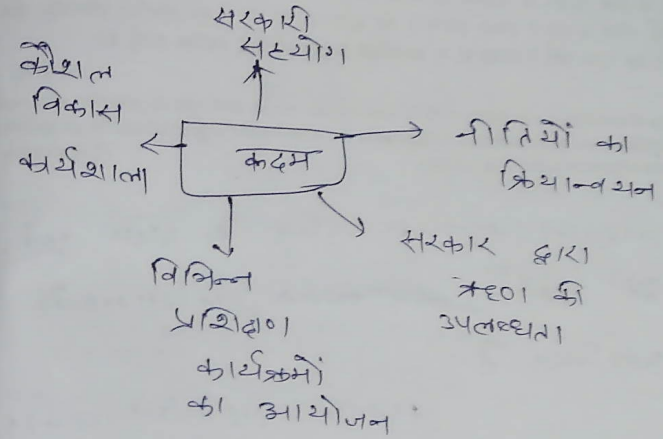 सरकारी
सहयोग
कौशल
विकास
कार्यशाला
कदम
नीतियों का
क्रियान्वयन
सरकार द्वारा
ऋण की
उपलब्धता
विभिन्न
प्रशिक्षण
कार्यक्रमों
का आयोजन